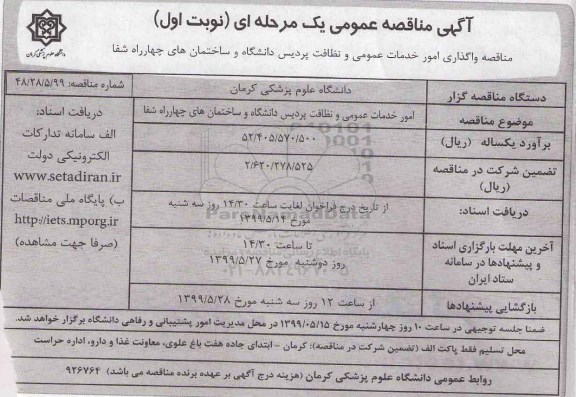 آگهی مناقصه عمومی یک مرحله ای (نوبت اول)
مناقصه واگذاری امور خدمات عمومی و نظافت پردیس دانشگاه و ساختمان های چهارراه شفا
دستگاه مناقصه گزار
دانشگاه علوم پزشکی کرمان
شماره مناقصه: ۴۸/۲۸/۵/۹۹
موضوع مناقصه
امور خدمات عمومی و نظافت پردیس دانشگاه و ساختمان های چهارراه شفا
برآورد یکساله (ریال)
۵۲/۴۰۵/۵۷۰/۵۰۰
تضمین شرکت در مناقصه
(ریال)
۲/۶۲۰/۲۷۸/۵۲۵
دریافت اسناد:
از تاریخ درج فراخوان لغایت ساعت ۱۴/۳۰ روز سه شنبه
مورخ ۱۳۹۹/۵/۱۴
آخرین مهلت بارگزاری اسناد
و پیشنهادها در سامانه
ستاد ایران
تا ساعت ۱۴/۳۰
روز دوشنبه مورخ ۱۳۹۹/۵/۲۷
بازگشایی پیشنهادها
از ساعت ۱۲ روز سه شنبه مورخ ۱۳۹۹/۵/۲۸
دریافت اسناد:
الف سامانه تدارکات
الکترونیکی دولت
www.setadiran.ir
ب) پایگاه ملی مناقصات
http://iets.mporg.ir
(صرفا جهت مشاهده)
ضمنا جلسه توجیهی در ساعت ۱۰ روز چهارشنبه مورخ ۱۳۹۹/۰۵/۱۵ در محل مدیریت امور پشتیبانی و رفاهی دانشگاه برگزار خواهد شد.
محل تسلیم فقط پاکت الف (تضمین شرکت در مناقصه): کرمان – ابتدای جاده هفت باغ علوی، معاونت غذا و دارو، اداره حراست
روابط عمومی دانشگاه علوم پزشکی کرمان (هزینه درج آگهی بر عهده برنده مناقصه می باشد) ۹۲۶۷۶۴